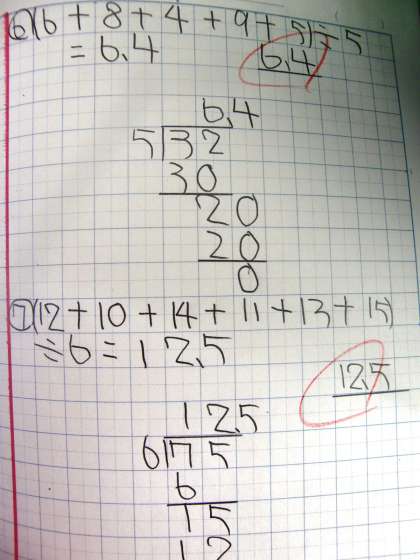 ⑥(6 + 8 + 4 + 9 + 5)÷5
= 6.4
6.4
6.4
5)32
30
20
20
0
⑦(12 + 10 + 14 + 11 + 13 + 15)
÷6 = 12.5
12.5
12.5
6)75
6
15
12